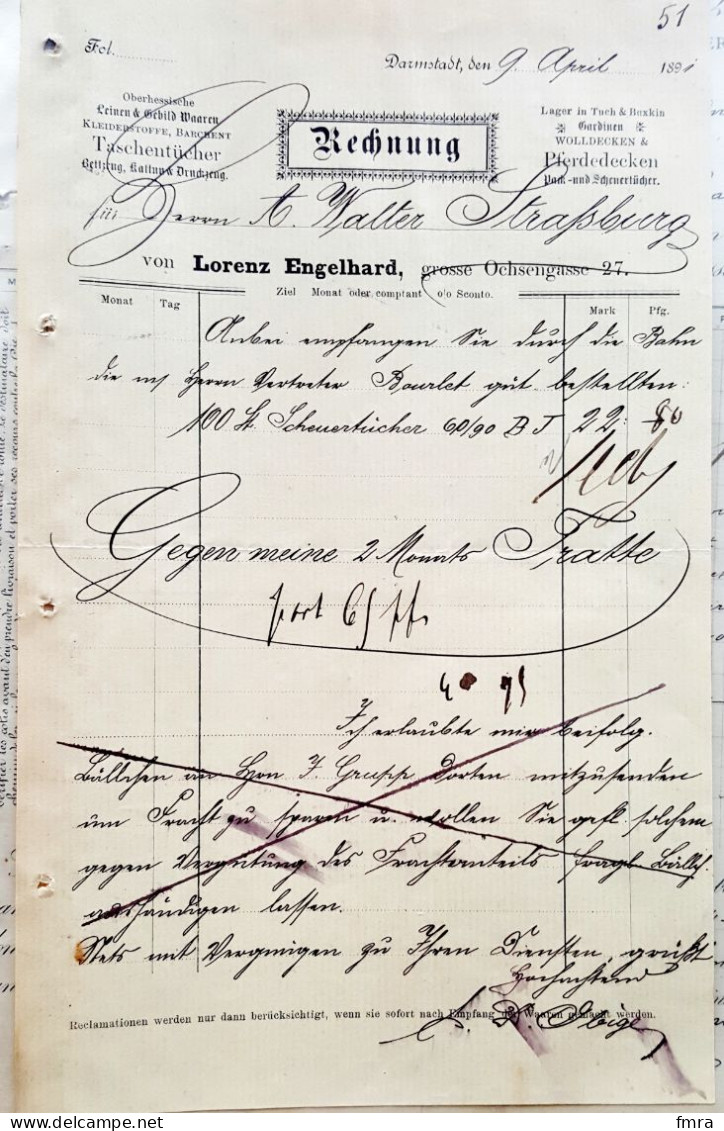 51
Fol.
Darmstadt, den 9. April 1891
Oberhessische
Leinen & Gebild Waaren
Kleiderstoffe, Barchent
Taschentücher
Bettzeug, Kattun & Druckzeug.
Rechnung
Lager in Tuch & Buxkin
Gardinen
Wolldecken &
Pferdedecken
Pack- und Scheuertücher.
für Herrn A. Walter Straßburg
von Lorenz Engelhard, grosse Ochsengasse 27.
Monat Tag Ziel Monat oder comptant o/o Sconto. Mark Pfg.
Anbei empfangen Sie durch die Bahn
die m/ Herrn Vertreter Bourlet güt. bestellten:
100 St. Scheuertücher 60/90 B J 22: 80
Gegen meine 2 Monats Tratte
port 65 pf.
Ich erlaubte mir beifolg.
Bällchen an Hrn J. Grupp dorten mitzusenden
um Fracht zu sparen u. wollen Sie gefl. solchem
gegen Vergütung des Frachtanteils fragl. Bällch.
aushändigen lassen.
Stets mit Vergnügen zu Ihren Diensten, grüßt
Hochachtend
Reclamationen werden nur dann berücksichtigt, wenn sie sofort nach Empfang der Waaren gemacht werden.
D. Obige
fmra